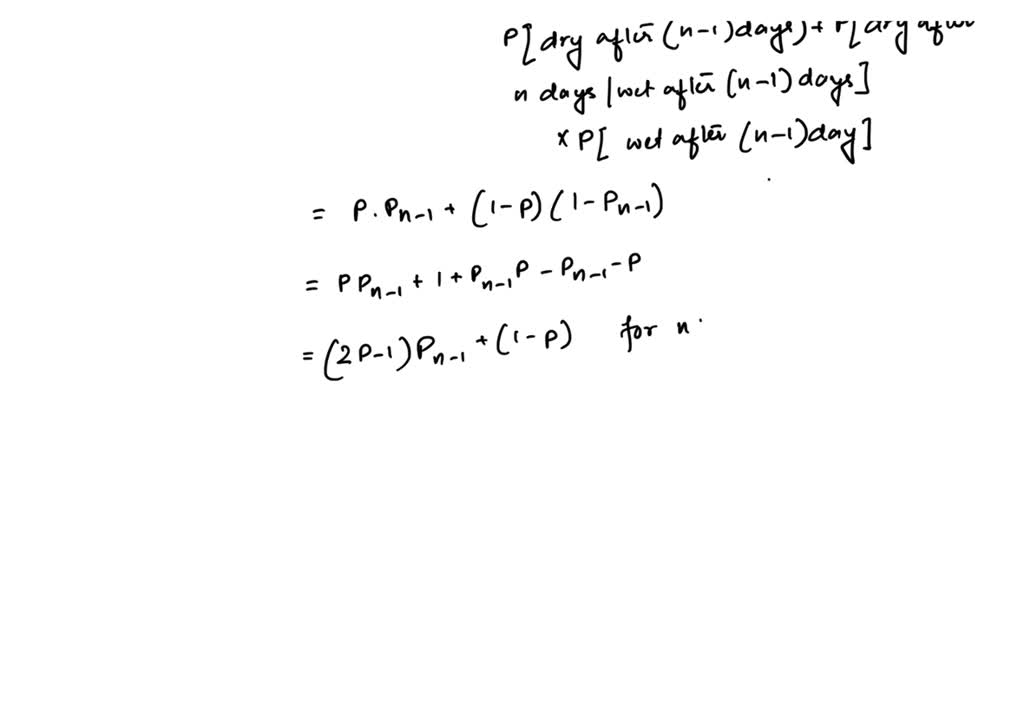 P[dry after (n-1)days)+ P[dry after
n days |wet after (n-1) days]
× P[ wet after (n-1)day]
= P.Pn-1 + (1-P)(1-Pn-1)
= P Pn-1 + 1 + Pn-1 P - Pn-1 - P
= (2P-1)Pn-1 + (1-P) for n